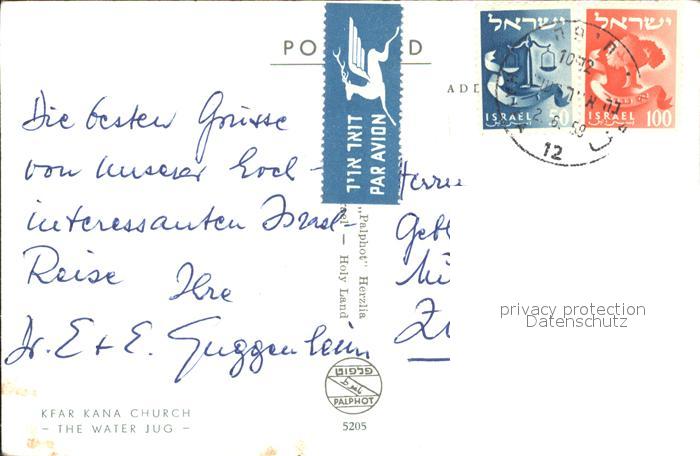 PO D
ADD
Die besten Grüsse
von unserer hoch-
interessanten Israel-
Reise Ihre
Dr. E + E. Guggenheim
Herrn
Gebr
Zü
דואר אויר
PAR AVION
ישראל
ISRAEL
50
ישראל
ISRAEL
100
12
„Palphot" Herzlia
rael — Holy Land
פלפוט
PALPHOT
5205
KFAR KANA CHURCH
– THE WATER JUG –
privacy protection
Datenschutz